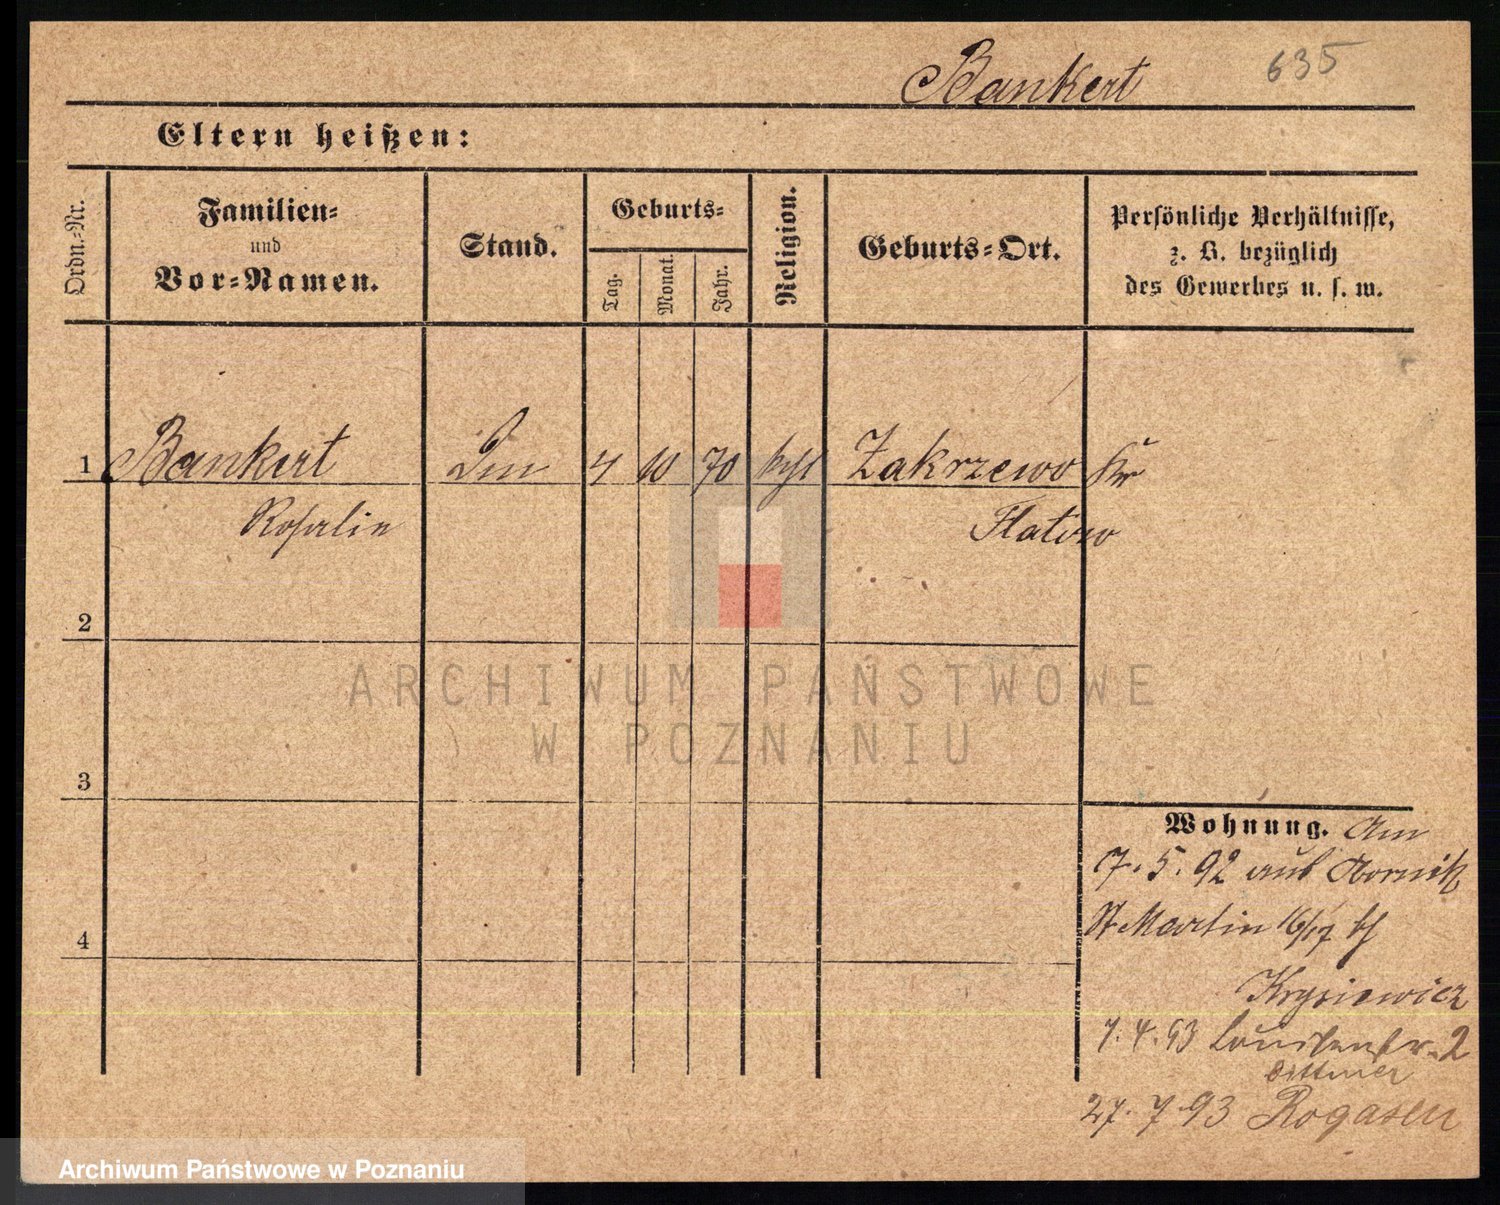 Bankert 635
Eltern heißen:
Ordn.-Nr.
Familien-
und
Vor-Namen.
Stand.
Geburts-
Tag.
Monat.
Jahr.
Religion.
Geburts-Ort.
Persönliche Verhältnisse,
z. B. bezüglich
des Gewerbes u. s. w.
1 Bankert 4 10 70 kath Zakrzewo Kr
Rosalie Flatow
2
3
4
Wohnung. Am
7. 5. 92 aus Obornik
St Martin 16/17 bei
Krysiewicz
7. 4. 93 Louisenstr. 2
Dittmer
27. 7. 93 Rogasen
ARCHIWUM PAŃSTWOWE
W POZNANIU
Archiwum Państwowe w Poznaniu